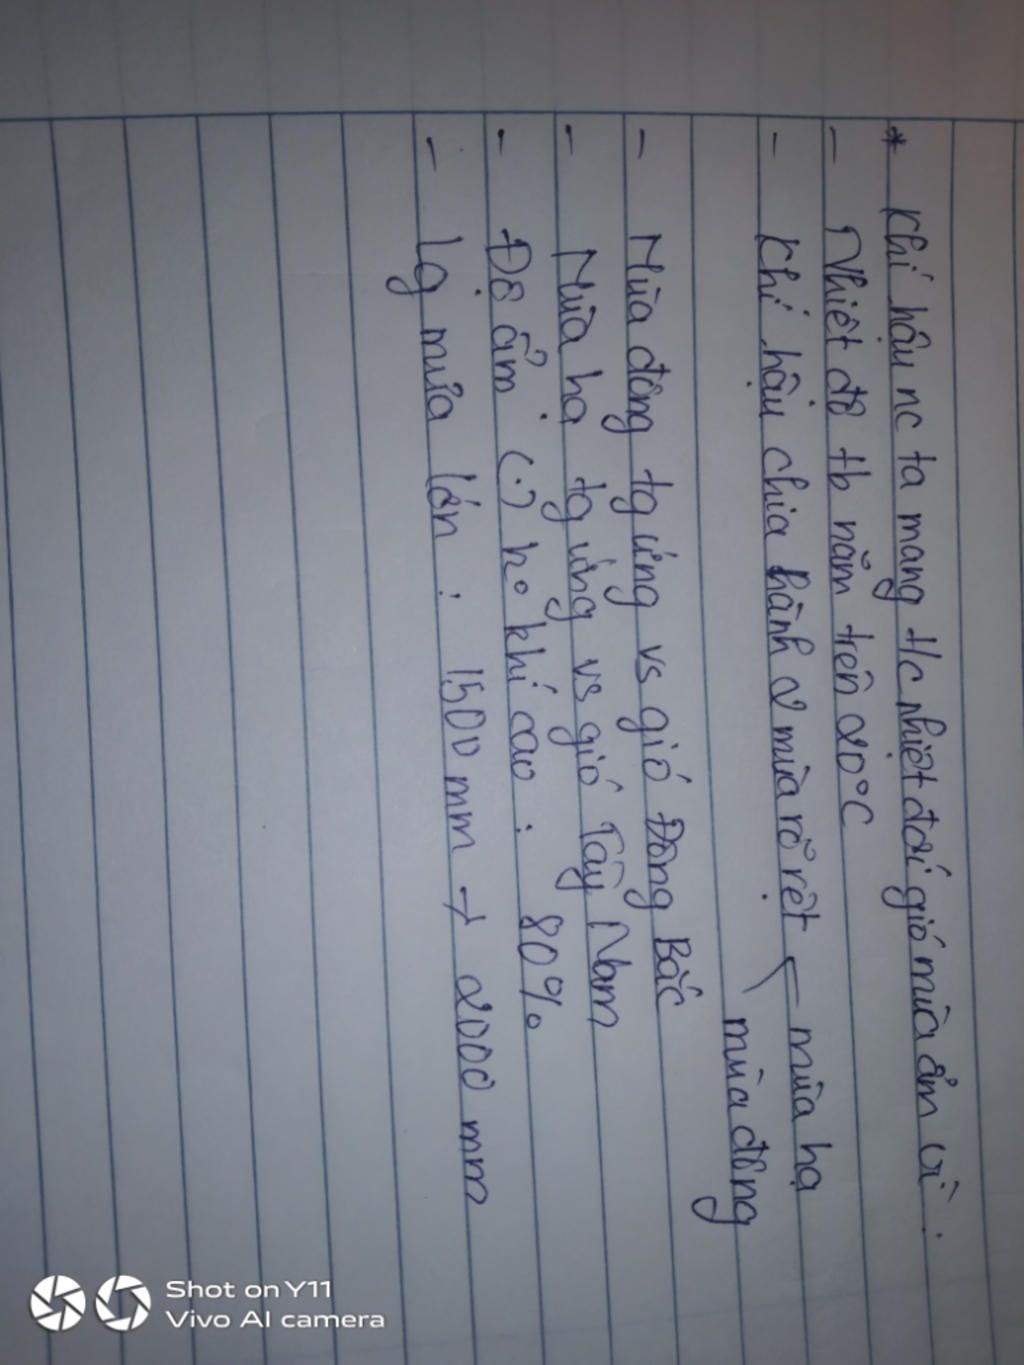 * Khí hậu nc ta mang t/c nhiệt đới gió mùa ẩm vì :
- Nhiệt độ tb năm trên 20°C
- Khí hậu chia hành 2 mùa rõ rệt mùa hạ
mùa đông
- Mùa đông tg ứng vs gió Đông Bắc
- Mùa hạ tg ứng vs gió Tây Nam
- Độ ẩm (.) ko khí cao : 80%
- lg mưa lớn : 1500 mm → 2000 mm
Shot on Y11
Vivo AI camera